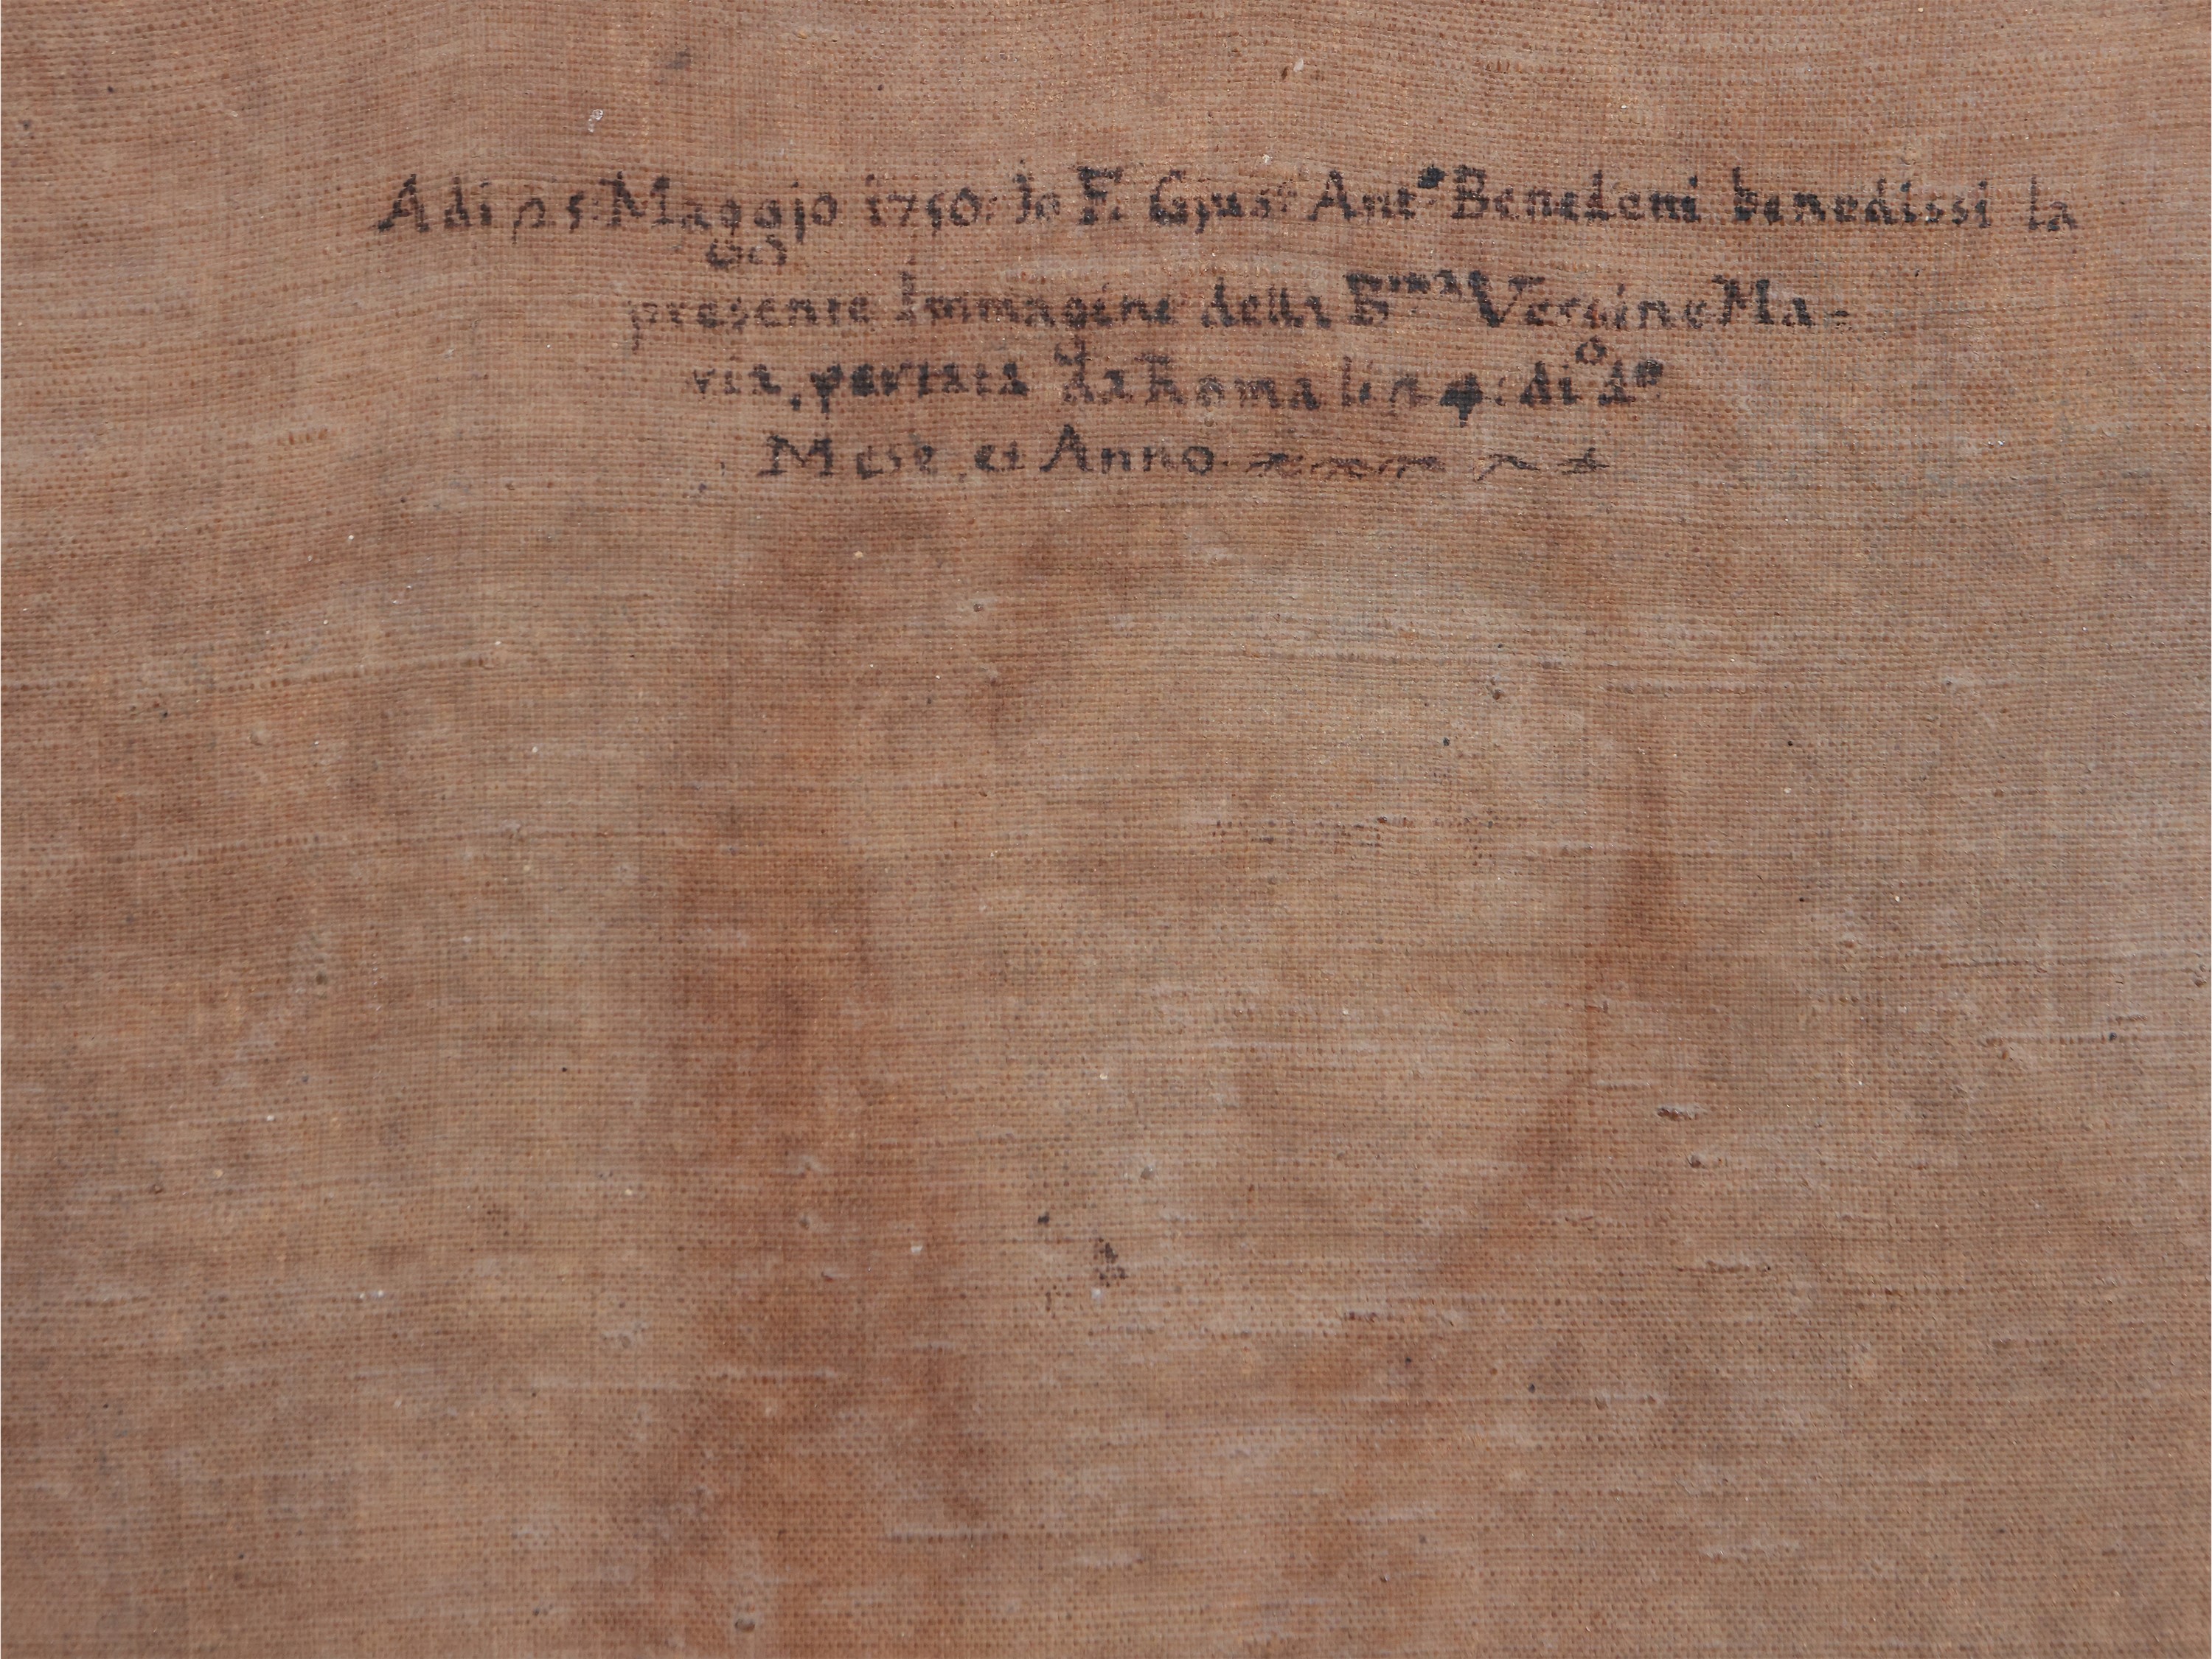 Adi 25: Maggio 1750: Io F. Gius: Ant.º Benedeni benedissi la
presente Immagine della B.ma Vergine Ma=
ria, portata da Roma li 24: di d.º
Mese et Anno